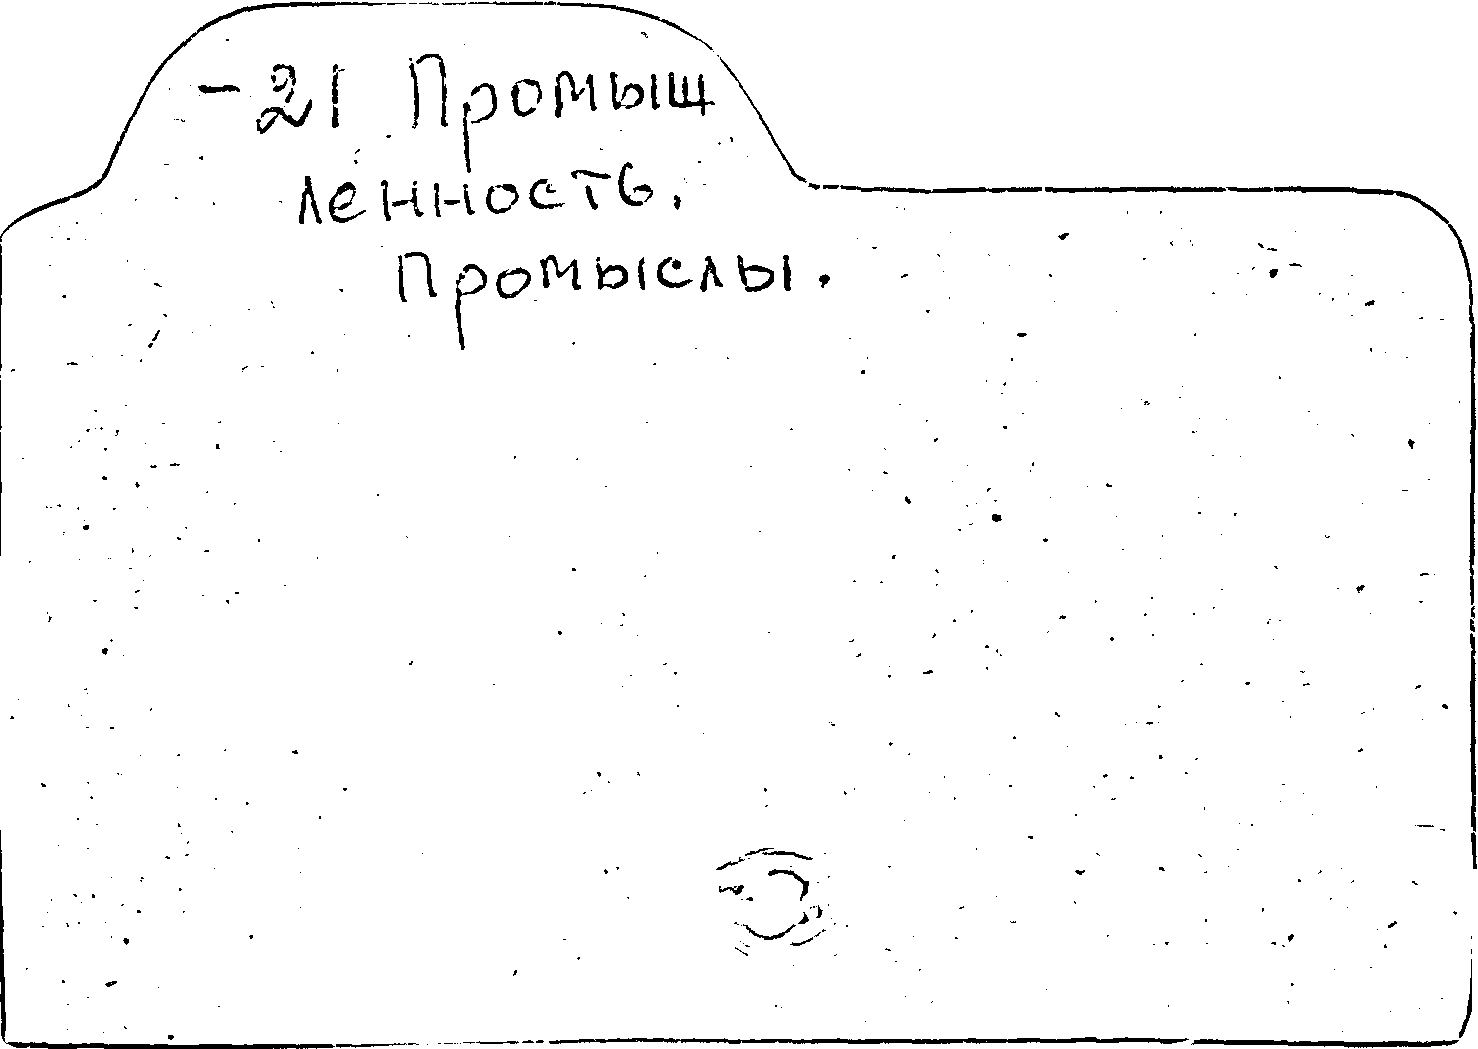 -21 Промыш
ленность.
Промыслы.